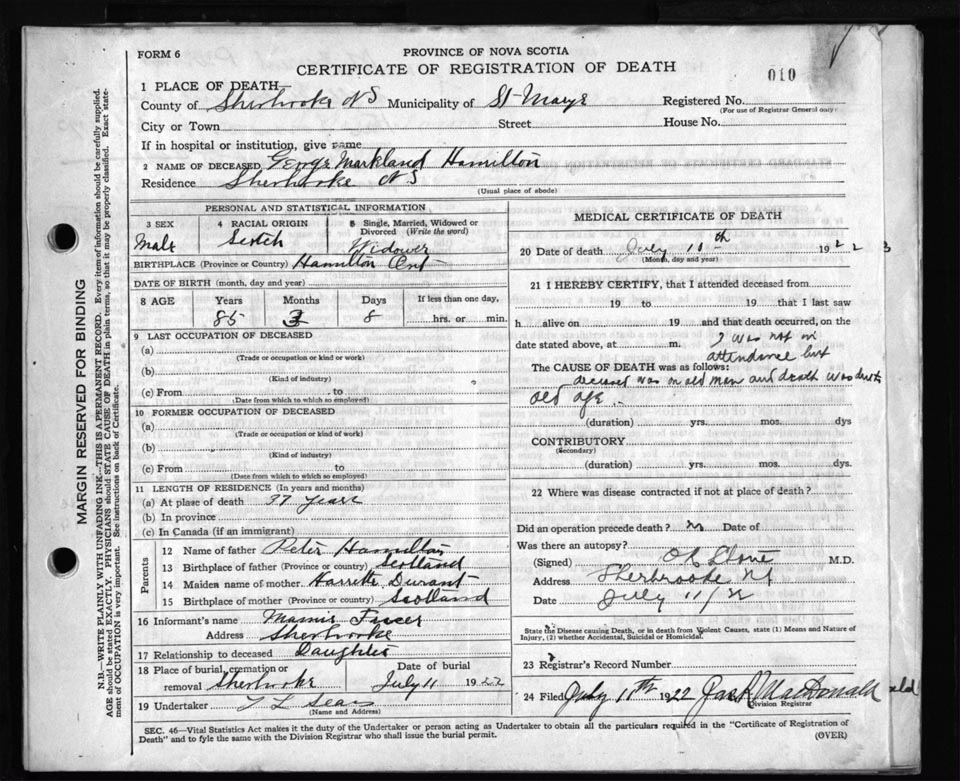 FORM 6
PROVINCE OF NOVA SCOTIA
CERTIFICATE OF REGISTRATION OF DEATH
010
1 PLACE OF DEATH
County of Sherbrooke NS Municipality of St Marys Registered No.
(For use of Registrar General only)
City or Town Street House No.
If in hospital or institution, give name
2 NAME OF DECEASED George Markland Hamilton
Residence Sherbrooke NS
(Usual place of abode)
PERSONAL AND STATISTICAL INFORMATION
3 SEX 4 RACIAL ORIGIN 5 Single, Married, Widowed or Divorced (Write the word)
Male Scotch Widower
BIRTHPLACE (Province or Country) Hamilton Ont
DATE OF BIRTH (month, day and year)
8 AGE Years Months Days If less than one day,
85 3 8 hrs. or min.
9 LAST OCCUPATION OF DECEASED
(a)
(Trade or occupation or kind of work)
(b)
(Kind of industry)
(c) From to
(Date from which to which so employed)
10 FORMER OCCUPATION OF DECEASED
(a)
(Trade or occupation or kind of work)
(b)
(Kind of industry)
(c) From to
(Date from which to which so employed)
11 LENGTH OF RESIDENCE (In years and months)
(a) At place of death 37 years
(b) In province
(c) In Canada (if an immigrant)
Parents
12 Name of father Peter Hamilton
13 Birthplace of father (Province or country) Scotland
14 Maiden name of mother Durant
15 Birthplace of mother (Province or country) Scotland
16 Informant's name
Address Sherbrooke
17 Relationship to deceased Daughter
18 Place of burial, cremation or removal Sherbrooke Date of burial July 11 1922
19 Undertaker
(Name and Address)
MEDICAL CERTIFICATE OF DEATH
20 Date of death July 11th 1922 3
(Month, day and year)
21 I HEREBY CERTIFY, that I attended deceased from
19 to 19 that I last saw
h alive on 19 and that death occurred, on the
date stated above, at m. I was not in
attendance but
The CAUSE OF DEATH was as follows:
deceased was an old man and death was due to
old age.
(duration) yrs. mos. dys
CONTRIBUTORY
(Secondary)
(duration) yrs. mos. dys.
22 Where was disease contracted if not at place of death?
Did an operation precede death? Date of
Was there an autopsy?
(Signed) M.D.
Address Sherbrooke NS
Date July 11/22
State the Disease causing Death, or in death from Violent Causes, state (1) Means and Nature of
Injury, (2) whether Accidental, Suicidal or Homicidal.
23 Registrar's Record Number
24 Filed July 11th 1922 MacDonald
Division Registrar
SEC. 46—Vital Statistics Act makes it the duty of the Undertaker or person acting as Undertaker to obtain all the particulars required in the "Certificate of Registration of
Death" and to fyle the same with the Division Registrar who shall issue the burial permit.
(OVER)
MARGIN RESERVED FOR BINDING
N.B.—WRITE PLAINLY WITH UNFADING INK—THIS IS A PERMANENT RECORD. Every item of information should be carefully supplied.
AGE should be stated EXACTLY. PHYSICIANS should STATE CAUSE OF DEATH in plain terms, so that it may be properly classified. Exact state-
ment of OCCUPATION is very important. See instructions on back of Certificate.